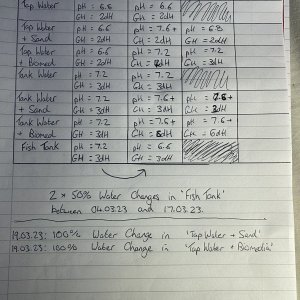 Tap Water pH = 6.6 pH = 6.6
GH = 2dH GH = 2dH
Tap Water pH = 6.6 pH = 7.6+ pH = 6.8
+ Sand GH = 2dH GH = 2dH GH = 2dH
Tap Water pH = 6.6 pH = 7.2 pH = 7.2
+ Biomed GH = 2dH GH = dH GH = 3dH
Tank Water pH = 7.2 pH = 7.2
GH = 3dH GH = 3dH
Tank Water pH = 7.2 pH = 7.6+ pH = 7.6+
+ Sand GH = 3dH GH = 3dH GH = 3dH
Tank Water pH = 7.2 pH = 7.6+ pH = 7.6+
+ Biomed GH = 3dH GH = dH GH = 6dH
Fish Tank pH = 7.2 pH = 6.6
GH = 3dH GH = 3dH
2 × 50% Water Changes in 'Fish Tank'
between 04.03.23 and 17.03.23.
19.03.23: 100% Water Change in 'Tap Water + Sand'
19.03.23: 100% Water Change in 'Tap Water + Biomedia'